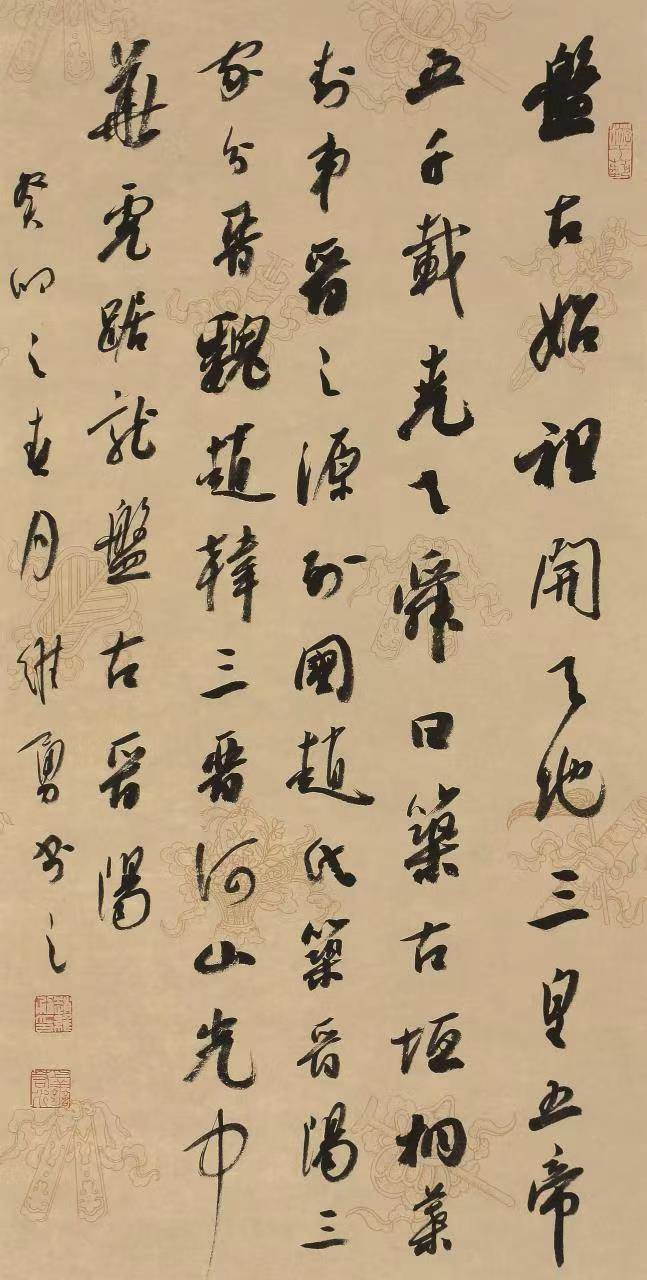 盤古始祖開天地三皇五帝
五千載堯天舜日築古垣桐葉
封弟晉之源列國趙氏築晉陽三
家分晉魏趙韓三晉河山光中
華虎踞龍盤古晉陽
癸卯之春月維勇書之